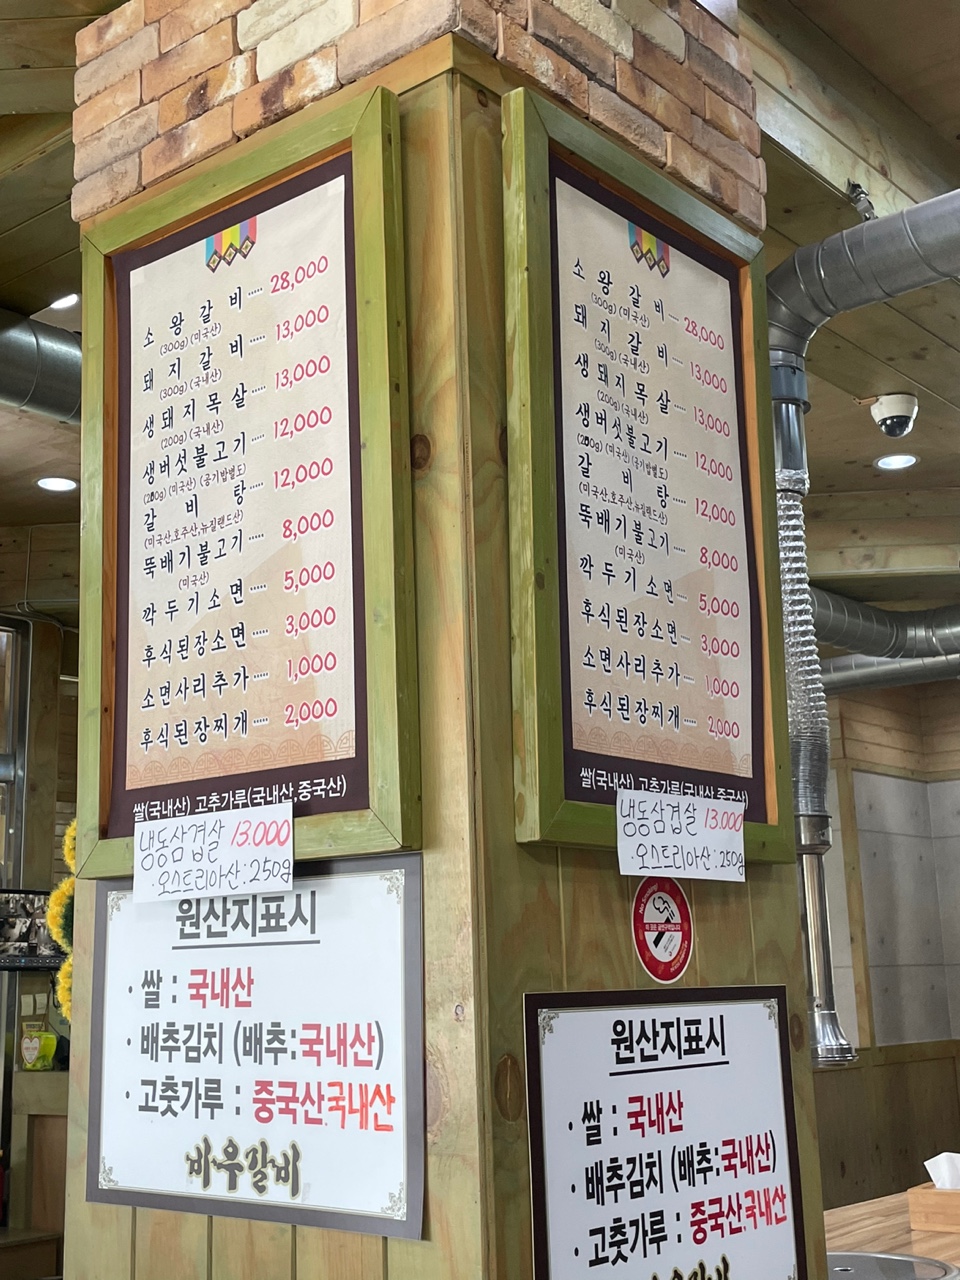 소 왕 갈 비 ····· 28,000
(300g) (미국산)
돼 지 갈 비 ····· 13,000
(300g) (국내산)
생 돼 지 목 살 ···· 13,000
(200g) (국내산)
생버섯불고기 ···· 12,000
(200g) (미국산) (공기밥별도)
갈 비 탕 ····· 12,000
(미국산,호주산,뉴질랜드산)
뚝배기불고기 ····· 8,000
(미국산)
깍 두 기 소 면 ····· 5,000
후식된장소면 ····· 3,000
소면사리추가 ···· 1,000
후식된장찌개 ····· 2,000
쌀(국내산) 고추가루(국내산,중국산)
냉동삼겹살 13.000
· 오스트리아산 : 250g
원산지표시
· 쌀 : 국내산
· 배추김치 (배추:국내산)
· 고춧가루 : 중국산.국내산
바우갈비
소 왕 갈 비 ····· 28,000
(300g) (미국산)
돼 지 갈 비 ····· 13,000
(300g) (국내산)
생 돼 지 목 살 ···· 13,000
(200g) (국내산)
생버섯불고기 ···· 12,000
(200g) (미국산) (공기밥별도)
갈 비 탕 ····· 12,000
(미국산,호주산,뉴질랜드산)
뚝배기불고기 ····· 8,000
(미국산)
깍 두 기 소 면 ····· 5,000
후식된장소면 ···· 3,000
소면사리추가 ···· 1,000
후식된장찌개 ····· 2,000
쌀(국내산) 고추가루(국내산,중국산)
냉동삼겹살 13.000
· 오스트리아산 : 250g
No Smoking!
원산지표시
· 쌀 : 국내산
· 배추김치 (배추:국내산)
· 고춧가루 : 중국산.국내산
바우갈비